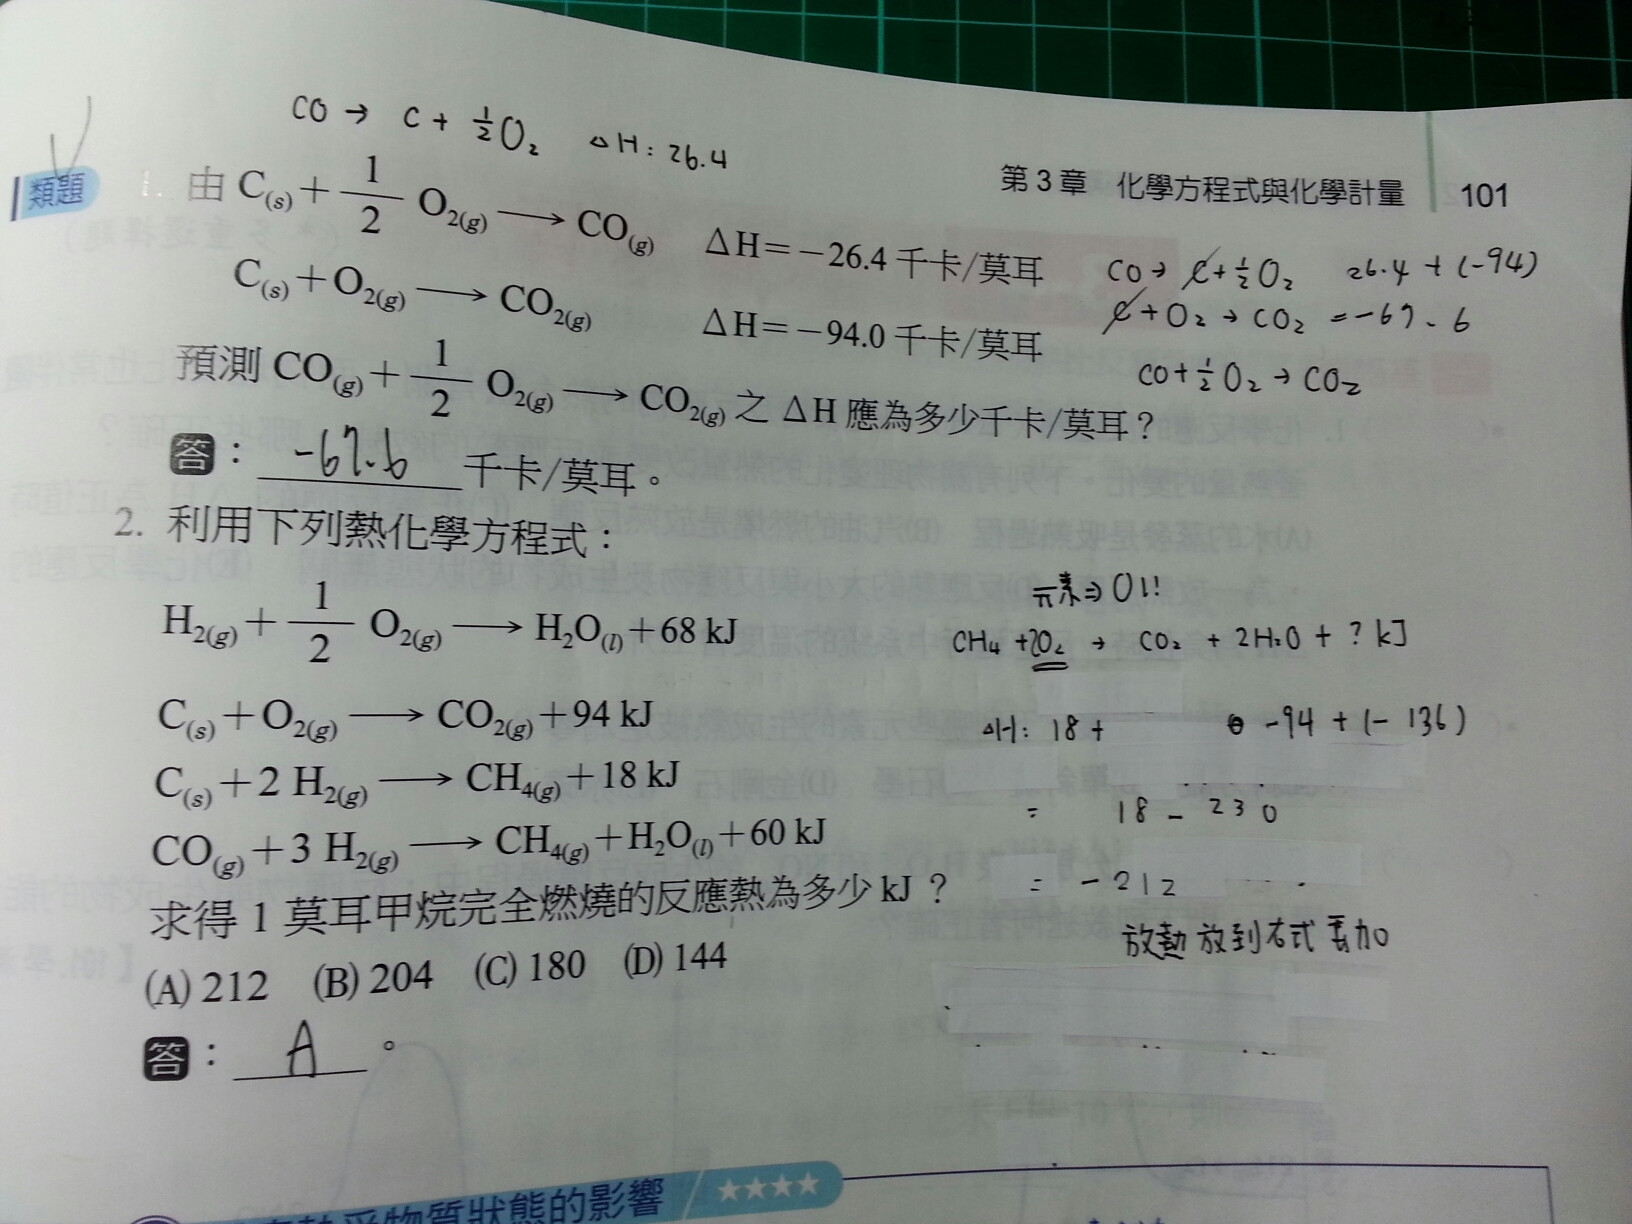 CO → C + ½O₂ △H: 26.4
第 3 章 化學方程式與化學計量 101
類題 1. 由 C(s)＋1/2 O2(g) ⟶ CO(g) ΔH＝－26.4 千卡/莫耳
C(s)＋O2(g) ⟶ CO2(g) ΔH＝－94.0 千卡/莫耳
預測 CO(g)＋1/2 O2(g) ⟶ CO2(g) 之 ΔH 應為多少千卡/莫耳？
答：-67.6 千卡/莫耳。
CO → C + ½O₂ 26.4 + (-94)
C + O₂ → CO₂ = -67.6
CO + ½O₂ → CO₂
2. 利用下列熱化學方程式：
H2(g)＋1/2 O2(g) ⟶ H2O(l)＋68 kJ
C(s)＋O2(g) ⟶ CO2(g)＋94 kJ
C(s)＋2 H2(g) ⟶ CH4(g)＋18 kJ
CO(g)＋3 H2(g) ⟶ CH4(g)＋H2O(l)＋60 kJ
求得 1 莫耳甲烷完全燃燒的反應熱為多少 kJ？
(A) 212 (B) 204 (C) 180 (D) 144
答：A。
元素⇒0!!
CH₄ + 2O₂ → CO₂ + 2H₂O + ? kJ
△H: 18 + -94 + (-136)
= 18 - 230
= -212
放熱放到右式要加
物質狀態的影響 ★★★★